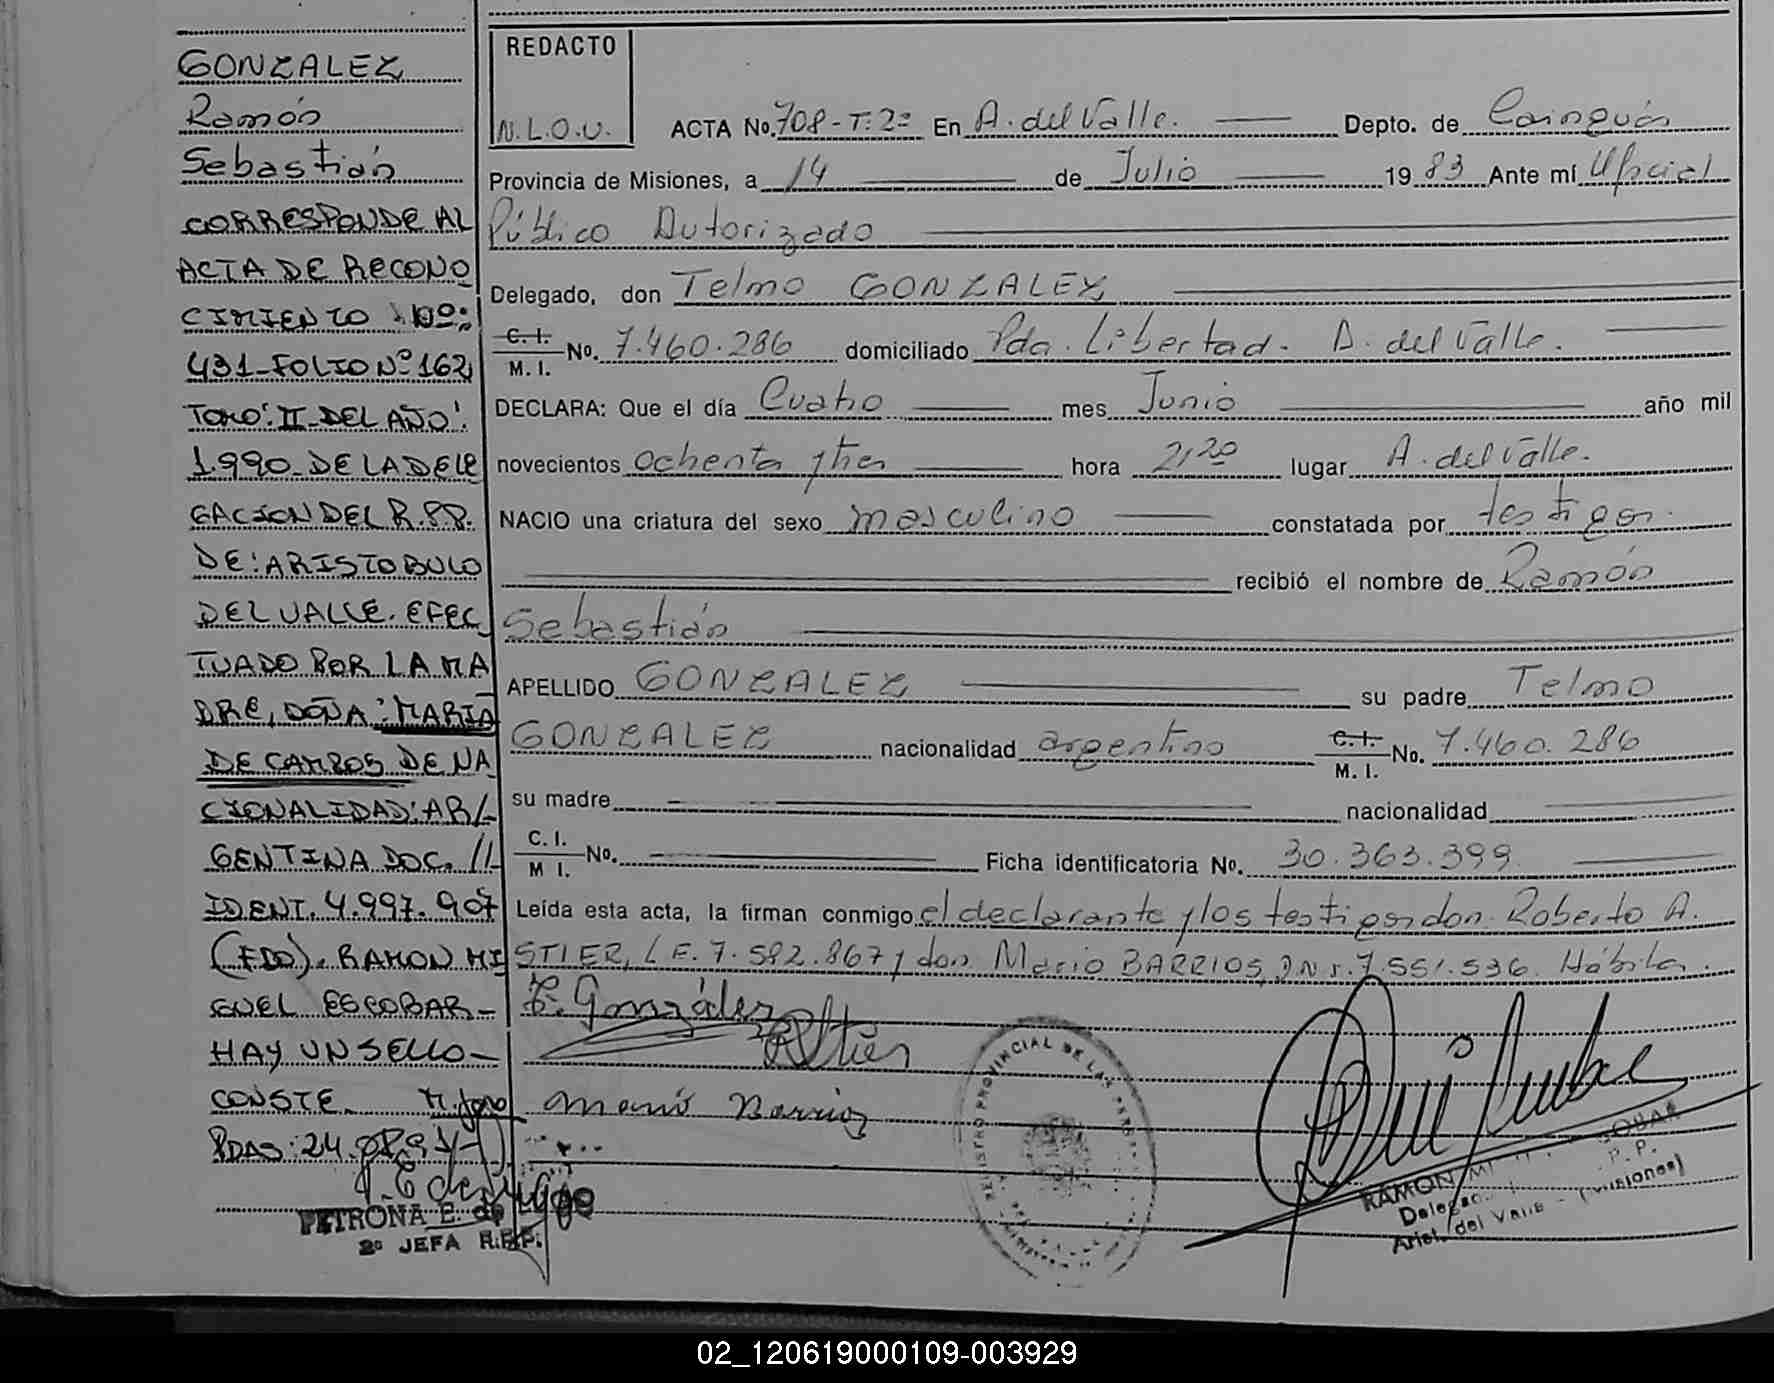 GONZALEZ
Ramón
Sebastián
CORRESPONDE AL
ACTA DE RECONO
CIMIENTO Nº:
431-FOLIO Nº 162
TOMO: II-DEL AÑO:
1.990-DE LA DELE
GACION DEL R.PP.
DE: ARISTOBULO
DEL VALLE. EFEC
TUADO POR LA MA
DRE, DOÑA: MARIA
DE CAMPOS DE NA
CIONALIDAD: AR/-
GENTINA DOC. //-
IDENT. 4.997.907
(FDO). RAMON MI
GUEL ESCOBAR-
HAY UN SELLO-
CONSTE.
PDAS: 24
PETRONA E. de
2º JEFA R.P.P.
REDACTO
N.L.O.U.
ACTA No. 708-T:2º En A. del Valle. Depto. de Cainguás
Provincia de Misiones, a 14 de Julio 1983 Ante mí Oficial
Público Autorizado
Delegado, don Telmo GONZALEZ
C. I. M. I. No. 7.460.286 domiciliado Pda. Libertad - A. del Valle.
DECLARA: Que el día Cuatro mes Junio año mil
novecientos ochenta y tres hora 21,20 lugar A. del Valle.
NACIO una criatura del sexo masculino constatada por testigos.
recibió el nombre de Ramón
Sebastián
APELLIDO GONZALEZ su padre Telmo
GONZALEZ nacionalidad argentino C. I. M. I. No. 7.460.286
su madre nacionalidad
C. I. M I. No. Ficha identificatoria No. 30.363.399
Leída esta acta, la firman conmigo el declarante y los testigos don Roberto A.
STIER, L.E. 7.582.867 y don Mario BARRIOS, DNI. 7.551.536. Hábiles.
T. González
RStier
Mario Barrios
REGISTRO PROVINCIAL DE LAS PERS
RAMON MI
P.P.
Delega
Arist. del Valle - (Misiones)
02_120619000109-003929